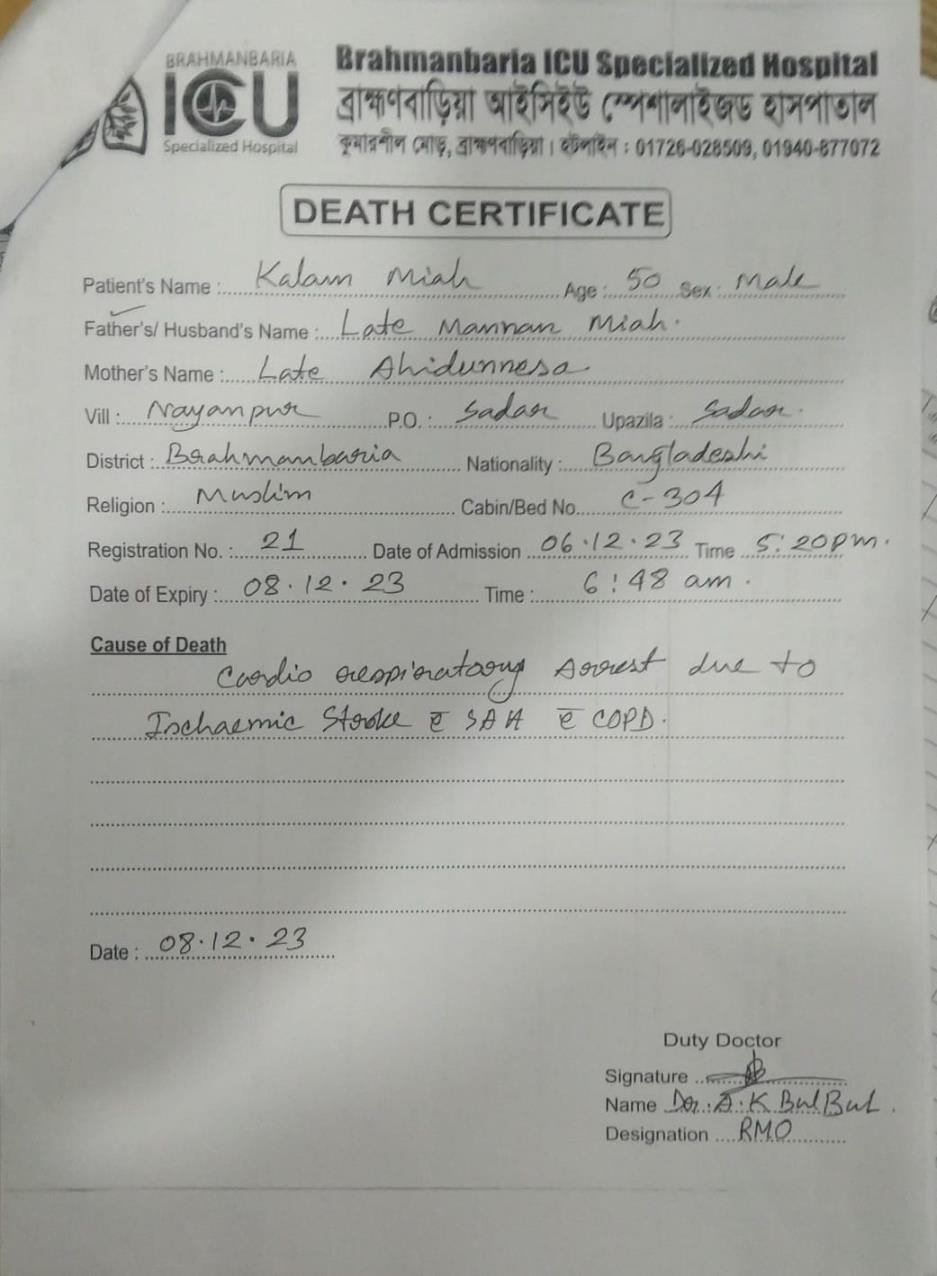 BRAHMANBARIA
ICU
Specialized Hospital
Brahmanbaria ICU Specialized Hospital
ব্রাহ্মণবাড়িয়া আইসিইউ স্পেশালাইজড হাসপাতাল
কুমারশীল মোড়, ব্রাহ্মণবাড়িয়া। হটলাইন : 01726-028509, 01940-877072
DEATH CERTIFICATE
Patient's Name : Kalam Miah Age : 50 Sex : Male
Father's/ Husband's Name : Late Mannan Miah.
Mother's Name : Late Ahidunnesa.
Vill : Nayanpur P.O. : Sadar Upazila : Sadar.
District : Brahmanbaria Nationality : Bangladeshi
Religion : Muslim Cabin/Bed No. C-304
Registration No. : 21 Date of Admission 06.12.23 Time 5:20pm.
Date of Expiry : 08.12.23 Time : 6:48 am.
Cause of Death
Cardio respiratory Arrest due to
Ischaemic Stroke c̅ SAH c̅ COPD.
Date : 08.12.23
Duty Doctor
Signature
Name Dr. A.K BulBul.
Designation RMO